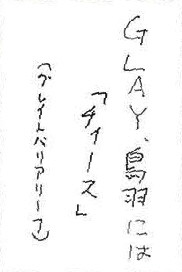 GLAY、鳥羽には
「チィース」
(グレイトバリアリーフ)